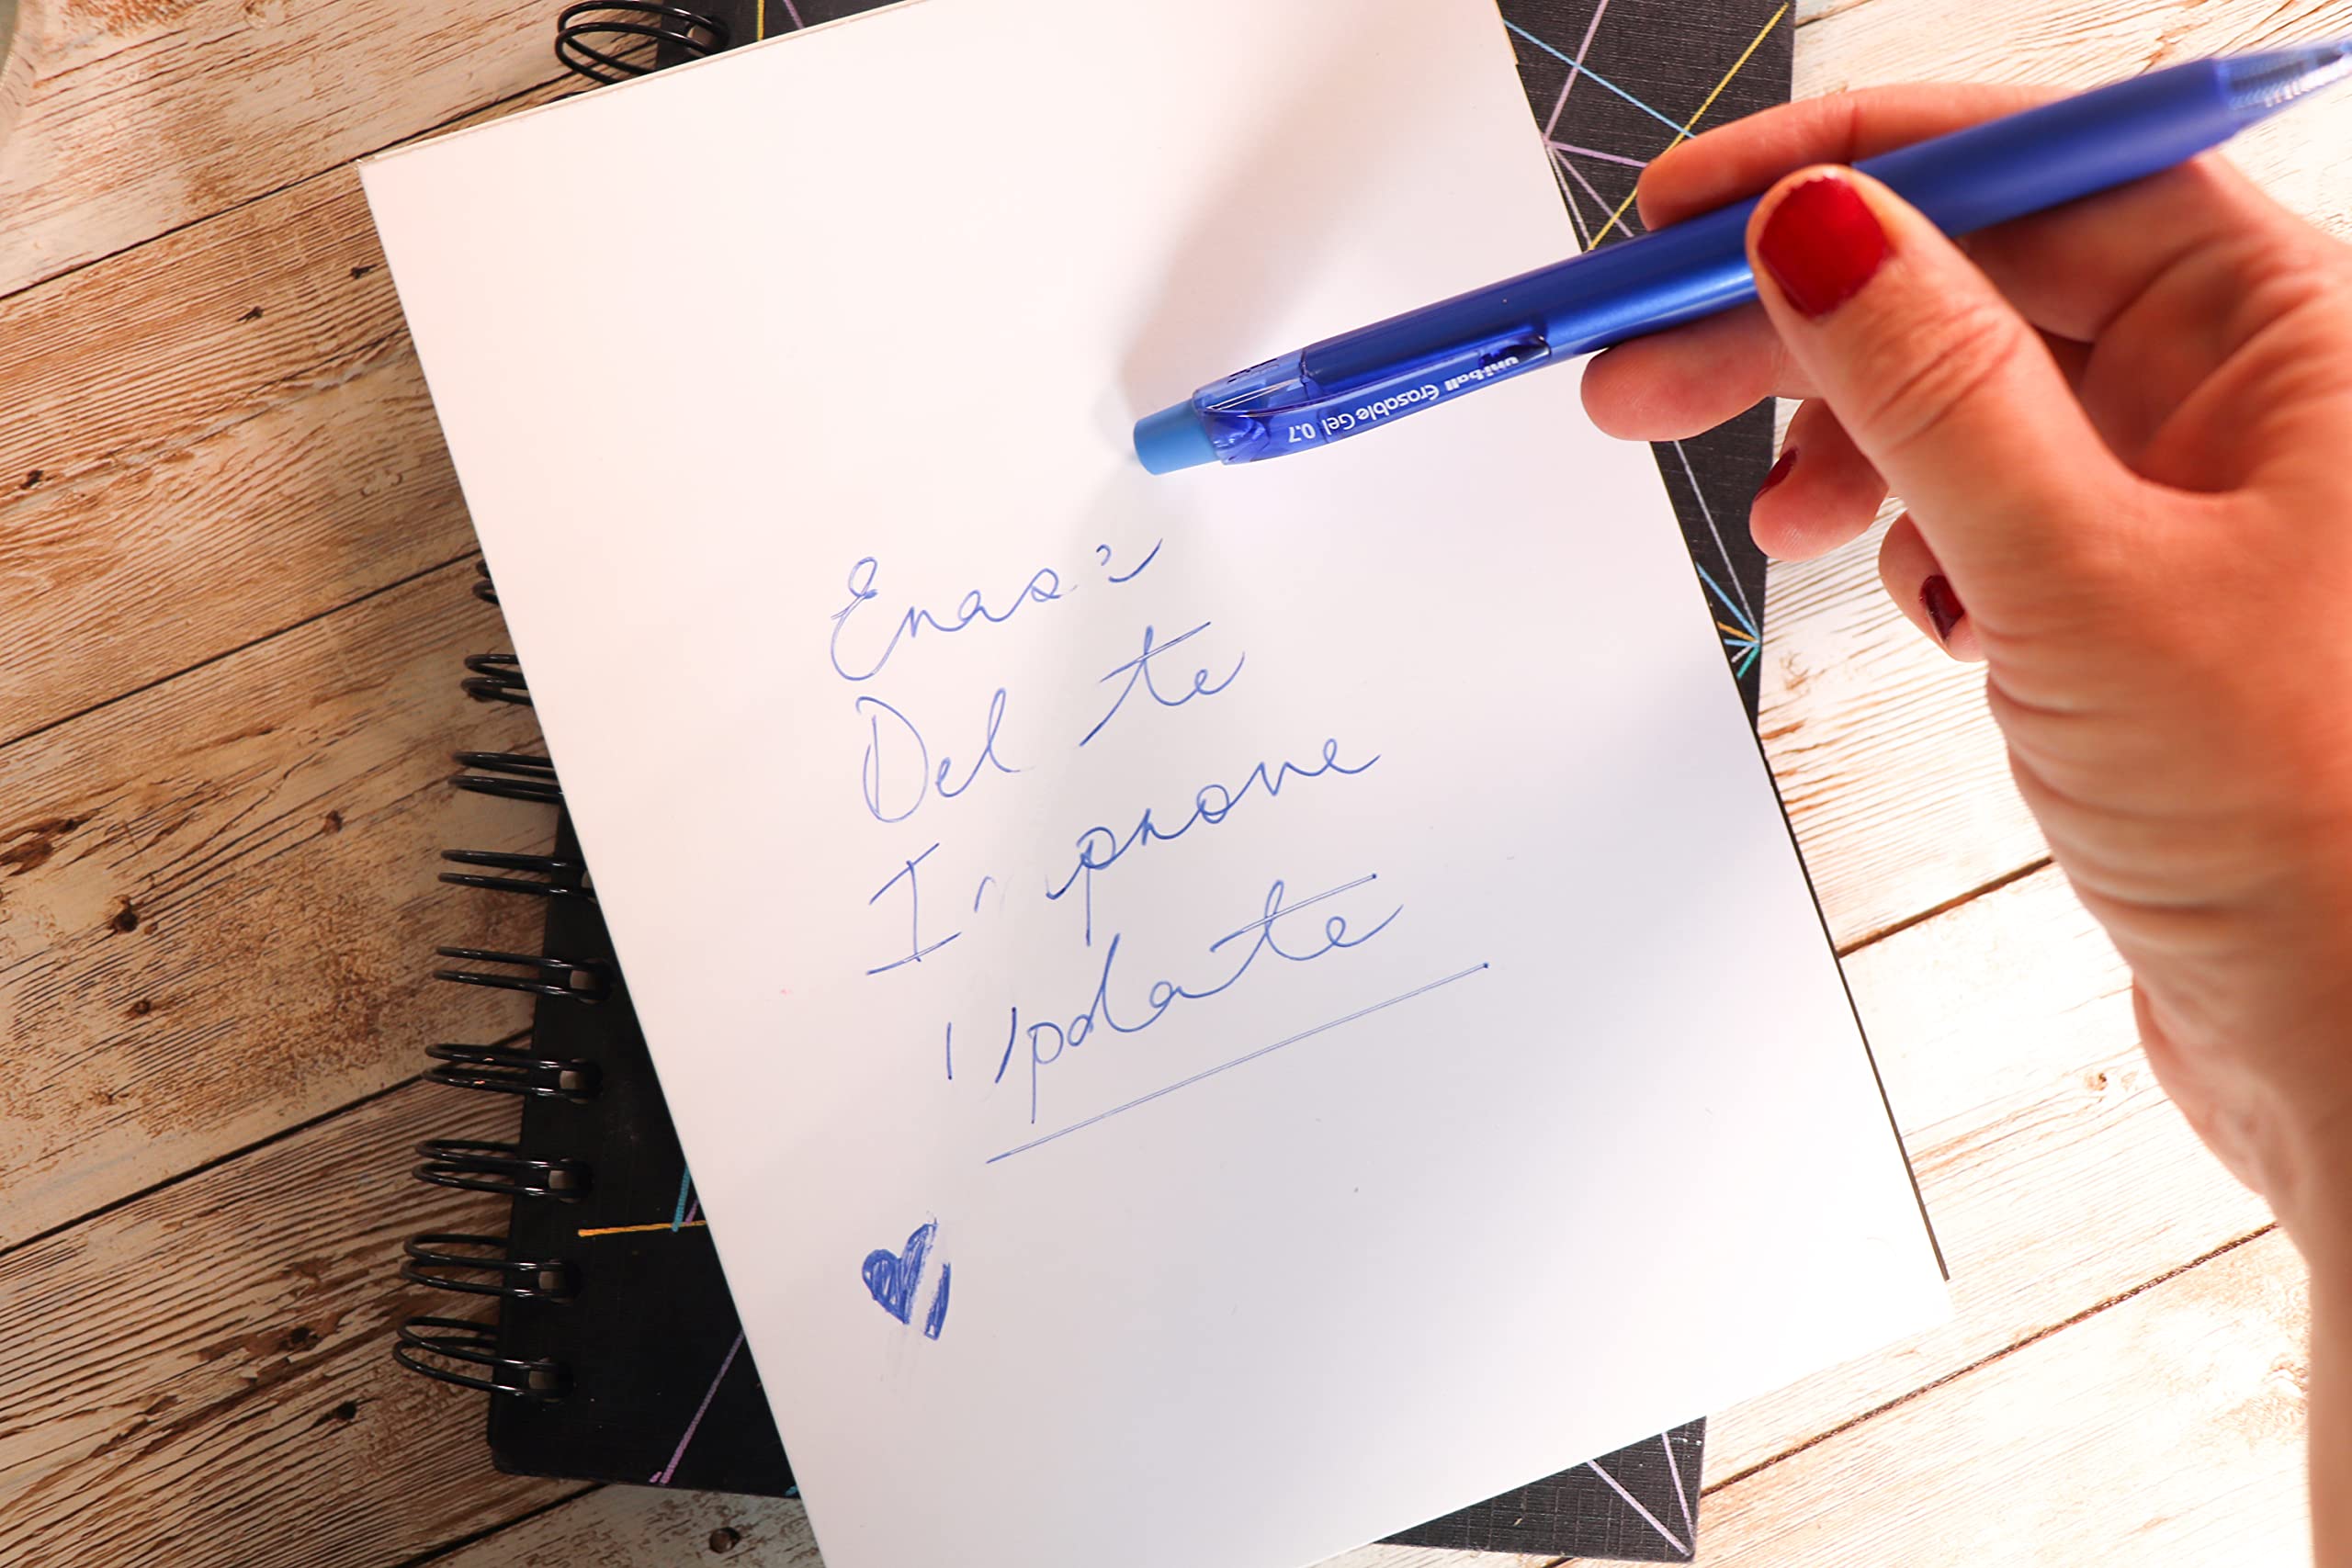 uni-ball Erasable Gel 0.7
Erase
Delete
Improve
Update